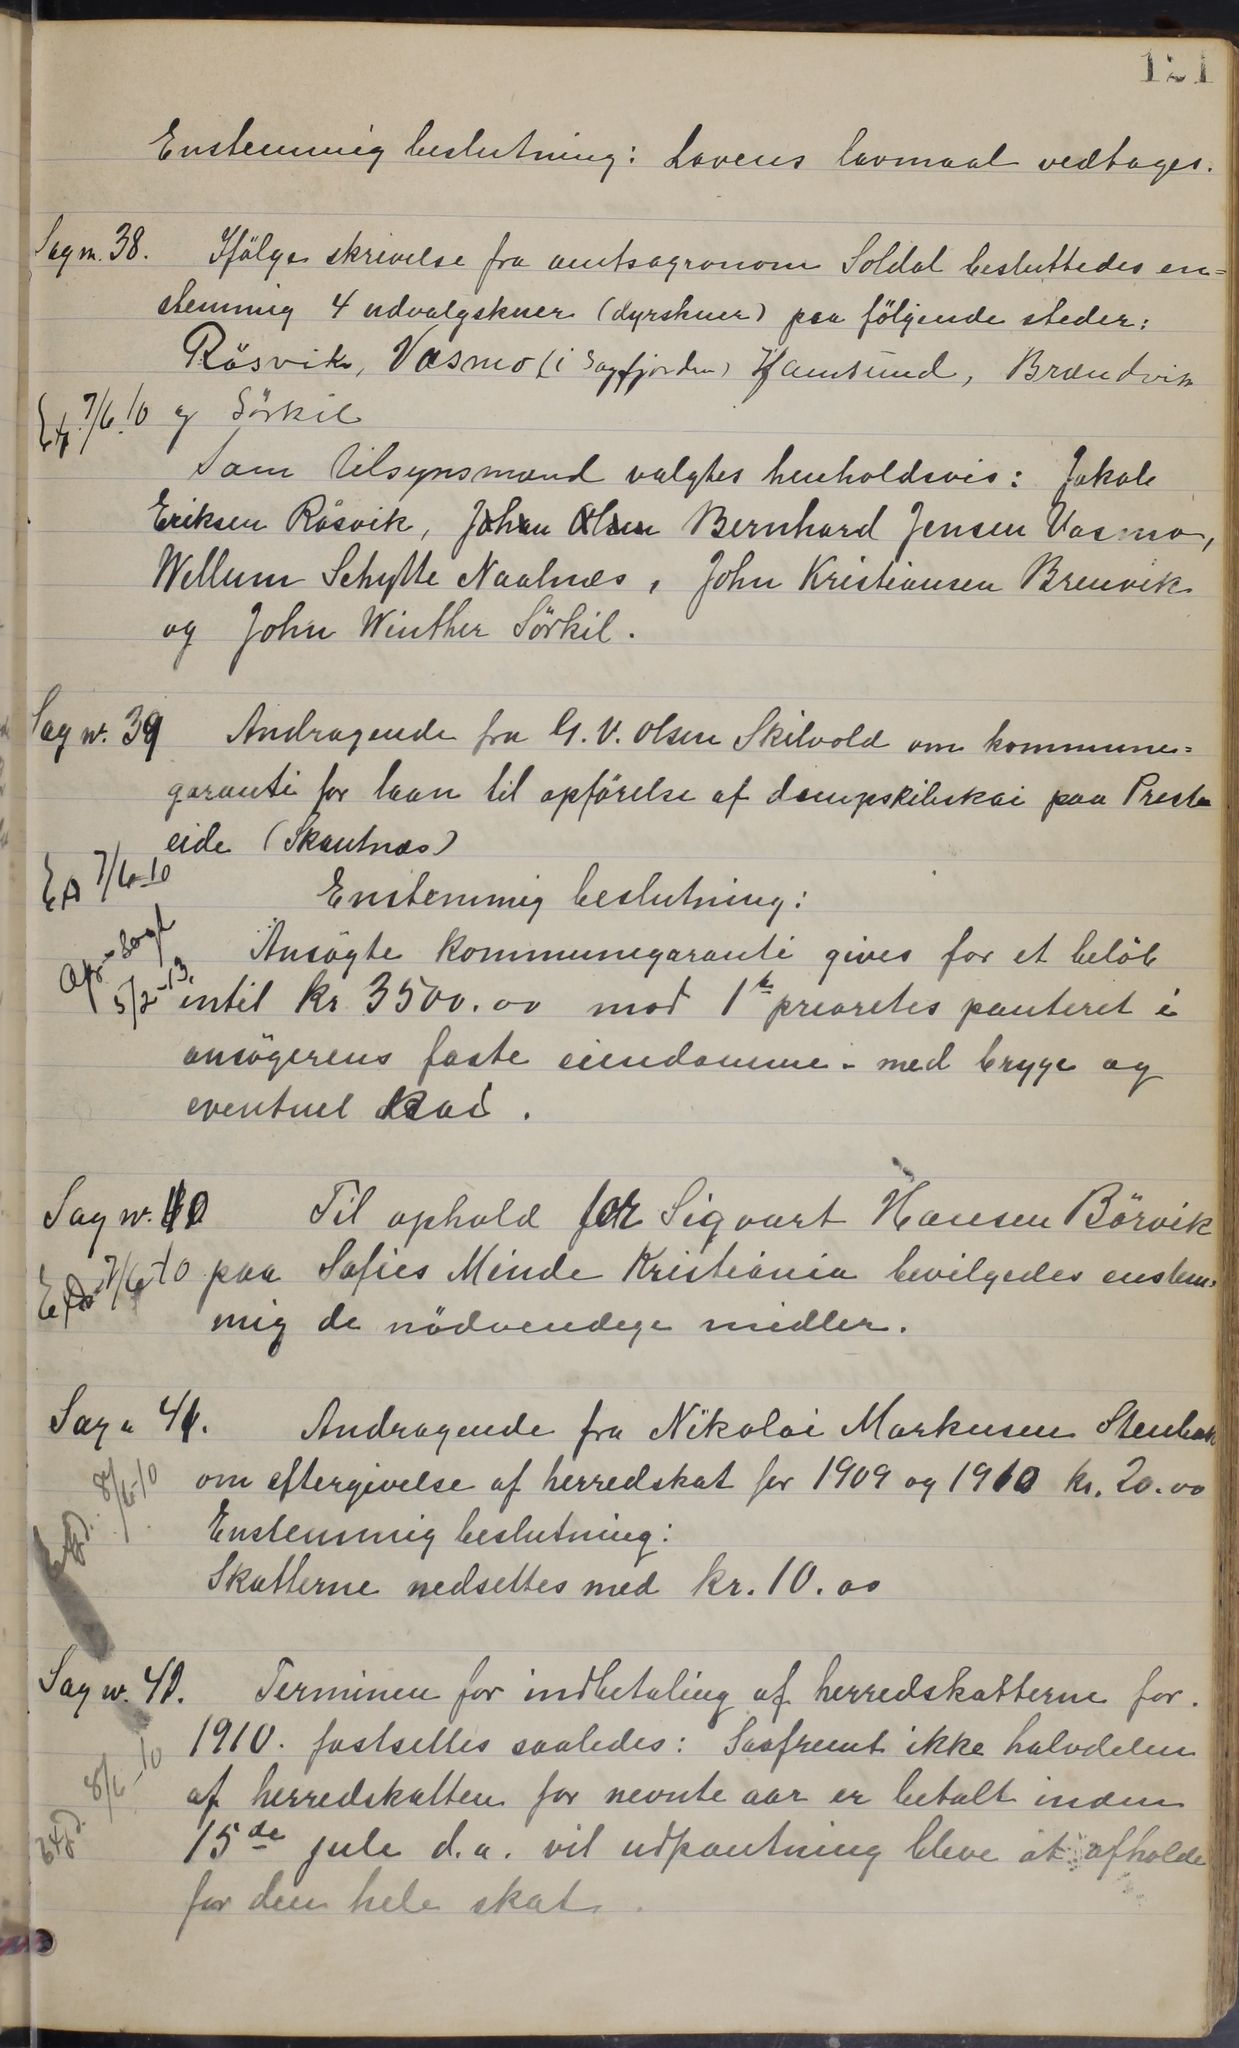 121
Enstemmig beslutning: Lovens lavmaal vedtages.
Sag n. 38. Ifölge skrivelse fra amtsagronom Soldal besluttedes en=
stemmig 4 udvalgskuer (dyrskuer) paa fölgende steder:
Rösvik, Vasmo (i Sagfjorden) Hamsund, Brændvik
Exp 7/6 10 og Sörkil
Som tilsynsmænd valgtes henholdsvis: Jakob
Eriksen Rösvik, Johan Olsen Bernhard Jensen Vasmo,
Willum Schytte Naalnes, John Kristiansen Brenvik
og John Winther Sörkil.
Sag n. 39 Andragende fra G. V. Olsen Skilvold om kommune=
garanti for laan til opförelse af dampskibskai paa Preste
eide (Skautnæs)
Exp 7/6-10 Enstemmig beslutning:
Ansögte kommunegaranti gives for et belöb
5/2-13. intil kr. 3500.00 mod 1ste prioretes panteret i
ansögerens faste eiendomme - med brygge og
eventuel kai.
Sag n. 40 Til ophold for Sigvart Hansen Börvik
Exp 7/6-10 paa Sofies Minde Kristiania bevilgedes enstem=
mig de nödvendige midler.
Sag n 41. Andragende fra Nikolai Markusen Stenbak
om eftergivelse af herredskat for 1909 og 1910 kr. 20.00
Expd. 8/6-10
Enstemmig beslutning:
Skatterne nedsettes med kr. 10.00
Sag n. 42. Terminen for indbetaling af herredskatterne for.
1910. fastsettes saaledes: Saafremt ikke halvdelen
Expd. 8/6-10
af herredskatten for nevnte aar er betalt inden
15de jule d.a. vil udpantning bleve at afholde
for den hele skat.